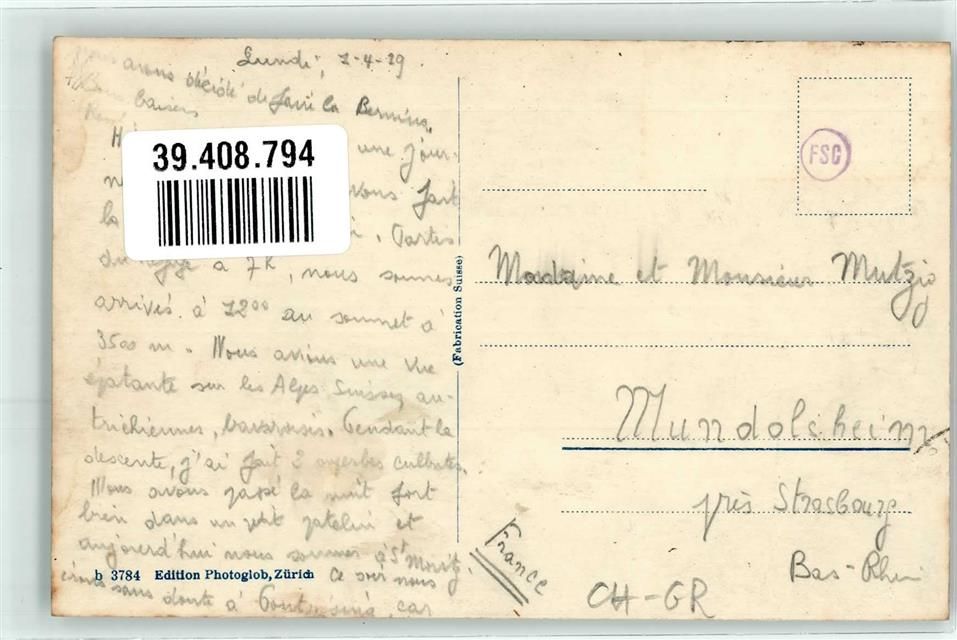 Lundi, 1-4-29
Nous avons décidé de faire la Bernina.
Bons baisers
39.408.794
une jour-
avons fait
la
Partis
du refuge à 7h, nous sommes
arrivés à 12⁰⁰ au sommet à
3500 m. Nous avions une vue
épatante sur les Alpes Suisses, au-
trichiennes, bavaroises. Pendant la
descente, j'ai fait 2 superbes culbutes.
Nous avons passé la nuit fort
bien dans un petit patelin et
aujourd'hui nous sommes à St Moritz.
Ce soir nous
irons sans doute à Pontresina, car
b 3784 Edition Photoglob, Zürich
(Fabrication Suisse)
FSC
Madame et Monsieur Mutzig
Mundolsheim
près Strasbourg
Bas-Rhin
France
CH-GR